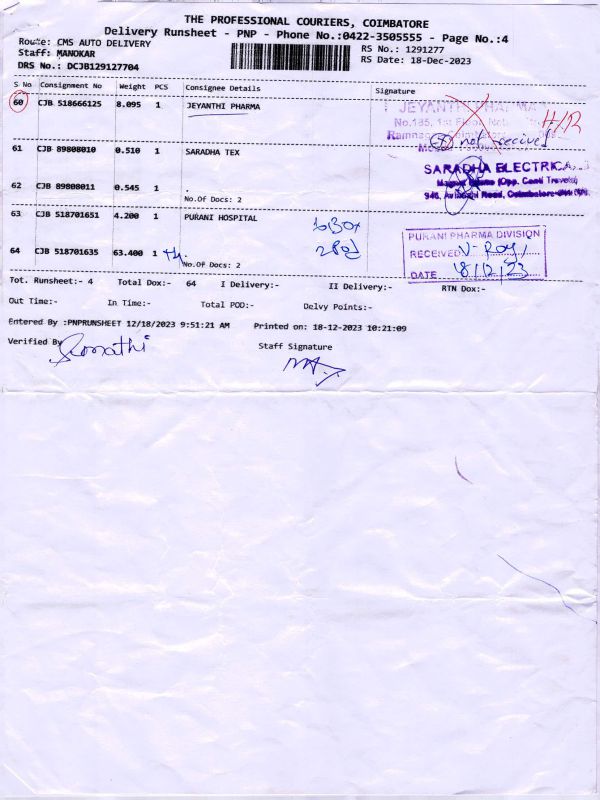 THE PROFESSIONAL COURIERS, COIMBATORE
Delivery Runsheet - PNP - Phone No.:0422-3505555 - Page No.:4
Route: CMS AUTO DELIVERY
RS No.: 1291277
Staff: MANOKAR
RS Date: 18-Dec-2023
DRS No.: DCJB129127704
S No Consignment No Weight PCS Consignee Details Signature
60 CJB 518666125 8.095 1 JEYANTHI PHARMA
not recived
61 CJB 89808010 0.510 1 SARADHA TEX
SARADHA ELECTRICA
62 CJB 89808011 0.545 1 .
No.Of Docs: 2
63 CJB 518701651 4.200 1 PURANI HOSPITAL
PURANI PHARMA DIVISION
RECEIVED
64 CJB 518701635 63.400 1 .
No.Of Docs: 2
DATE 18/12/23
Tot. Runsheet:- 4 Total Dox:- 64 I Delivery:- II Delivery:- RTN Dox:-
Out Time:- In Time:- Total POD:- Delvy Points:-
Entered By :PNPRUNSHEET 12/18/2023 9:51:21 AM Printed on: 18-12-2023 10:21:09
Verified By
Staff Signature